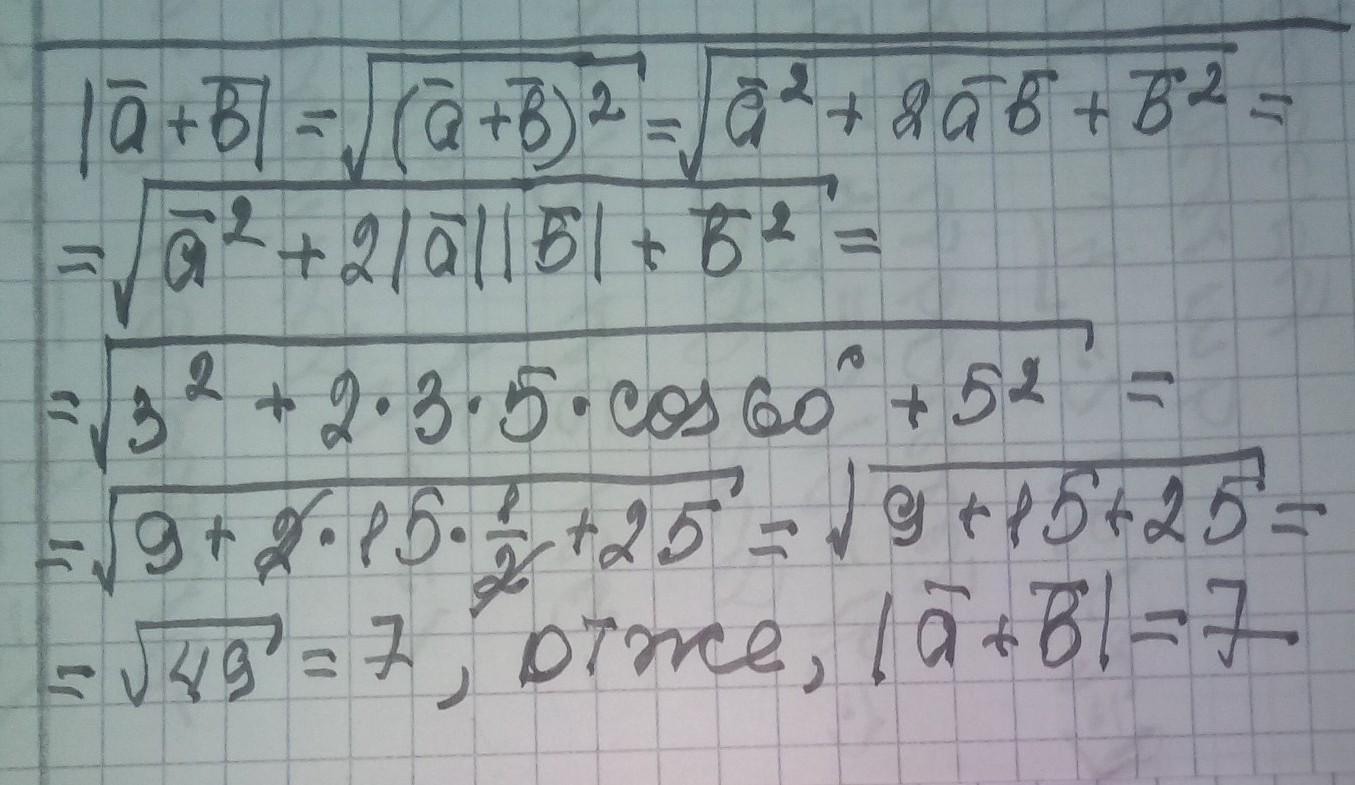 |a̅ + b̅| = √(a̅ + b̅)² = √a̅² + 2a̅b̅ + b̅² =
= √a̅² + 2|a̅||b̅| + b̅² =
= √3² + 2·3·5·cos60° + 5² =
= √9 + 2·15·1/2 + 25 = √9 + 15 + 25 =
= √49 = 7, отже, |a̅ + b̅| = 7